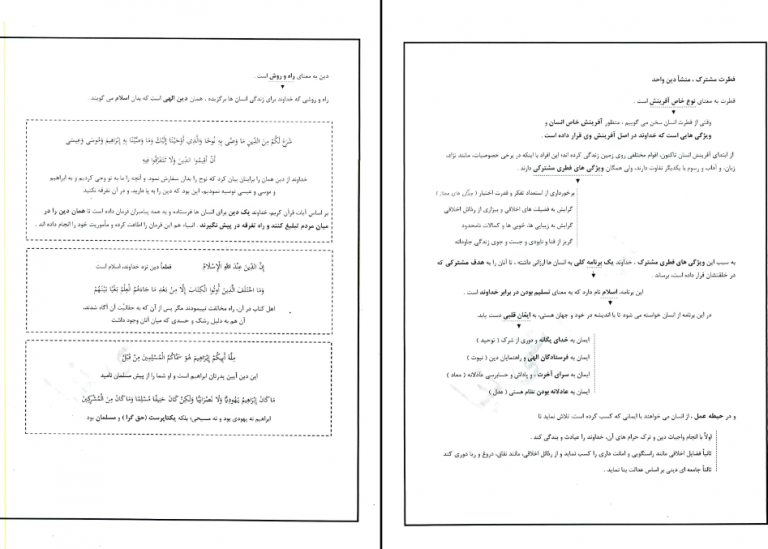 فطرت مشترک ، منشأ دین واحد
فطرت به معنای نوع خاص آفرینش است .
وقتی از فطرت انسان سخن می گوییم ، منظور آفرینش خاص انسان و
ویژگی هایی است که خداوند در اصل آفرینش وی قرار داده است .
از ابتدای آفرینش انسان تاکنون، اقوام مختلفی روی زمین زندگی کرده اند؛ این افراد با اینکه در برخی خصوصیات، مانند نژاد،
زبان، و آداب و رسوم با یکدیگر تفاوت دارند، ولی همگان ویژگی های فطری مشترکی دارند .
برخورداری از استعداد تفکر و قدرت اختیار
گرایش به فضیلت های اخلاقی و بیزاری از رذائل اخلاقی
گرایش به زیبایی ها، خوبی ها و کمالات نامحدود
گریز از فنا و نابودی و جست و جوی زندگی جاودانه
به سبب این ویژگی های فطری مشترک ، خداوند یک برنامه کلی به انسان ها ارزانی داشته ، تا آنان را به هدف مشترکی که
در خلقتشان قرار داده است، برساند .
این برنامه، اسلام نام دارد که به معنای تسلیم بودن در برابر خداوند است .
در این برنامه از انسان خواسته می شود تا با اندیشه در خود و جهان هستی، به ایمان قلبی دست یابد.
ایمان به خدای یگانه و دوری از شرک ( توحید )
ایمان به فرستادگان الهی و راهنمایان دین ( نبوت )
ایمان به سرای آخرت ، و پاداش و حسابرسی عادلانه ( معاد )
ایمان به عادلانه بودن نظام هستی ( عدل )
و در حیطه عمل ، از انسان می خواهند با ایمانی که کسب کرده است، تلاش نماید تا
اولاً با انجام واجبات دین و ترک حرام های آن، خداوند را عبادت و بندگی کند .
ثانیاً فضایل اخلاقی مانند راستگویی و امانت داری را کسب نماید و از رذائل اخلاقی، مانند نفاق، دروغ و ریا دوری کند
ثالثاً جامعه ای دینی بر اساس عدالت بنا نماید .
دین به معنای راه و روش است .
راه و روشی که خداوند برای زندگی انسان ها برگزیده ، همان دین الهی است که بدان اسلام می گویند .
شَرَعَ لَکُم مِنَ الدّینِ مَا وَصَّی بِهِ نُوحًا وَالَّذِی أَوْحَیْنَا إِلَیْکَ وَمَا وَصَّیْنَا بِهِ إِبْرَاهِیمَ وَمُوسَی وَعِیسَی
أَنْ أَقِیمُوا الدّینَ وَلَا تَتَفَرَّقُوا فِیهِ
خداوند از دین همان را برایتان بیان کرد که نوح را بدان سفارش نمود، و آنچه را ما به تو وحی کردیم و به ابراهیم
و موسی و عیسی توصیه نمودیم، این بود که دین را به پا دارید، و در آن تفرقه نکنید
بر اساس آیات قرآن کریم، خداوند یک دین برای انسان ها فرستاده و به همه پیامبران فرمان داده است تا همان دین را در
میان مردم تبلیغ کنند و راه تفرقه در پیش نگیرند . انبیاء هم این فرمان را اطاعت کرده و مأموریت خود را انجام داده اند .
إِنَّ الدّینَ عِنْدَ اللّهِ الْإِسْلَامُ قطعاً دین نزد خداوند، اسلام است
وَمَا اخْتَلَفَ الَّذِینَ أُوتُوا الْکِتَابَ إِلَّا مِنْ بَعْدِ مَا جَاءَهُمُ الْعِلْمُ بَغْیًا بَیْنَهُمْ
اهل کتاب در آن، راه مخالفت نپیمودند مگر پس از آن که به حقانیت آن آگاه شدند،
آن هم به دلیل رشک و حسدی که میان آنان وجود داشت
مِلَّةَ أَبِیکُمْ إِبْرَاهِیمَ هُوَ سَمَّاکُمُ الْمُسْلِمِینَ مِنْ قَبْلُ
این دین آیین پدرتان ابراهیم است و او شما را از پیش مسلمان نامید
مَا کَانَ إِبْرَاهِیمُ یَهُودِیًّا وَلَا نَصْرَانِیًّا وَلَکِنْ کَانَ حَنِیفًا مُسْلِمًا وَمَا کَانَ مِنَ الْمُشْرِکِینَ
ابراهیم نه یهودی بود و نه مسیحی؛ بلکه یکتاپرست (حق گرا ) و مسلمان بود